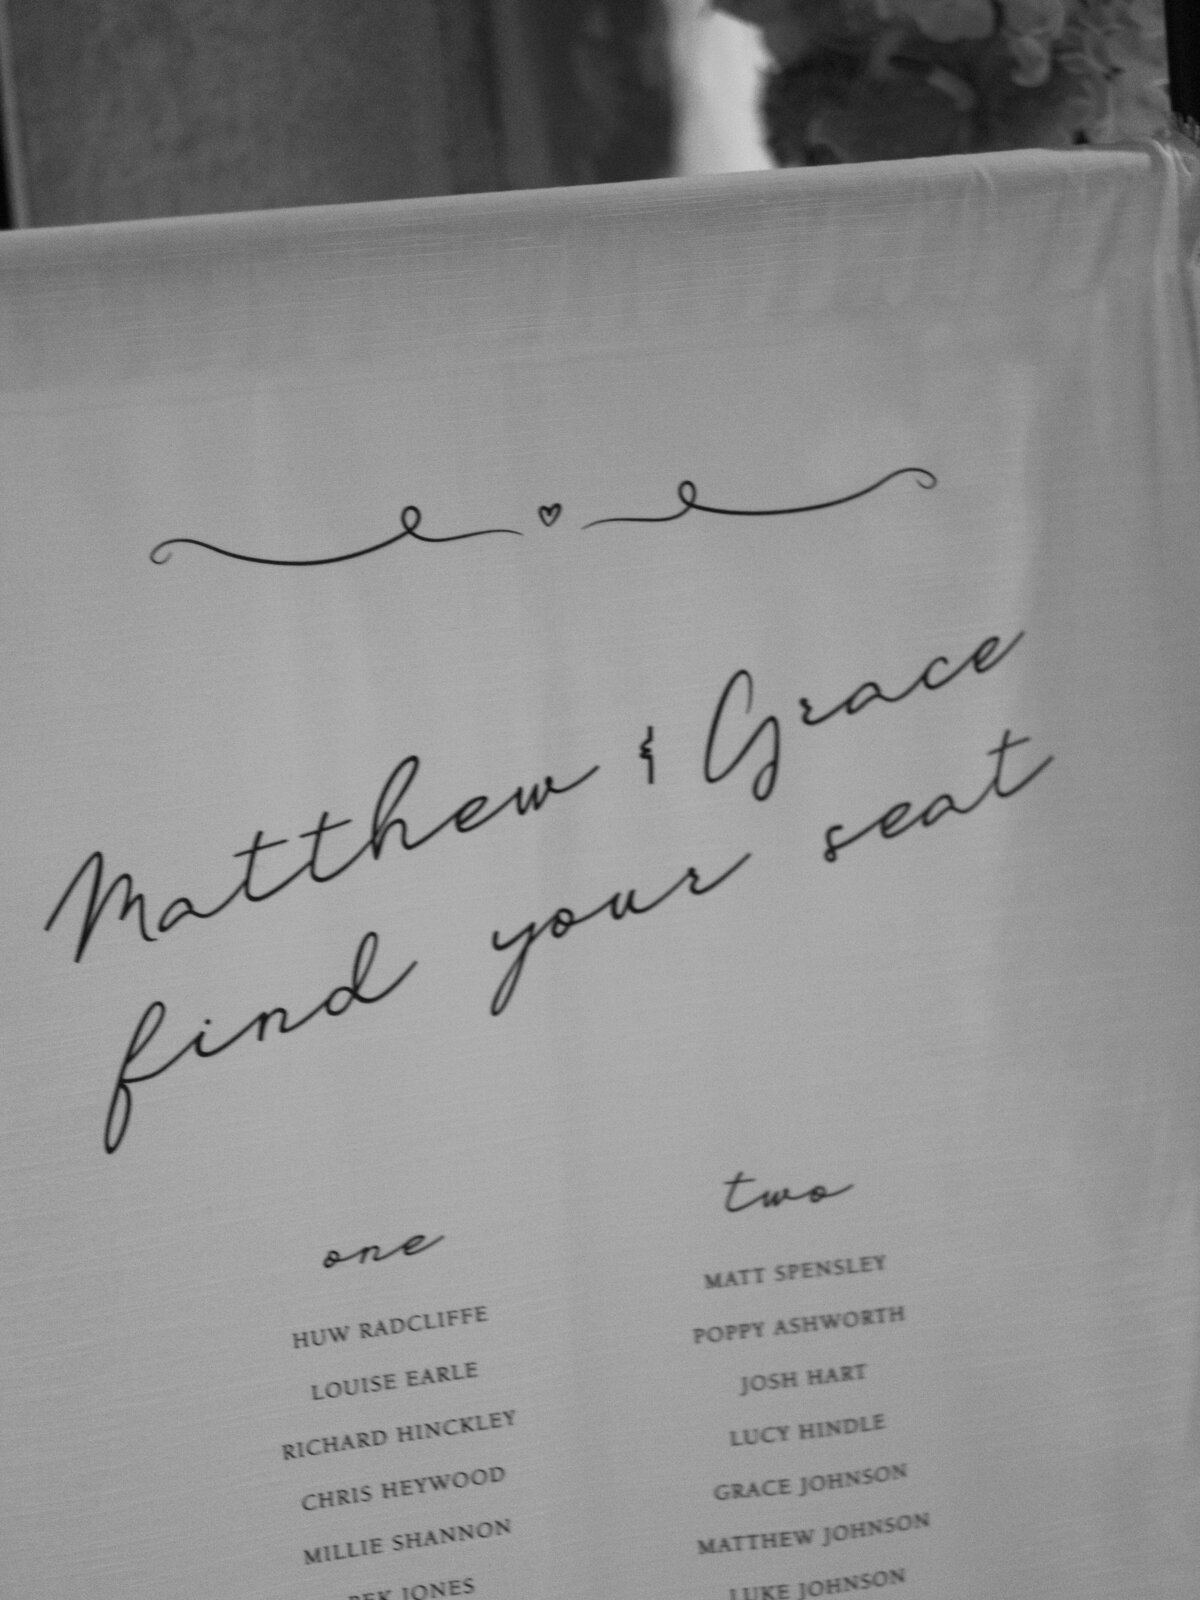 Matthew & Grace
find your seat
one
HUW RADCLIFFE
LOUISE EARLE
RICHARD HINCKLEY
CHRIS HEYWOOD
MILLIE SHANNON
JONES
two
MATT SPENSLEY
POPPY ASHWORTH
JOSH HART
LUCY HINDLE
GRACE JOHNSON
MATTHEW JOHNSON
LUKE JOHNSON